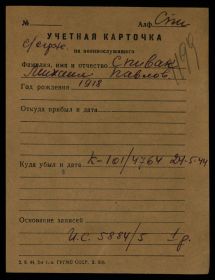 №
Алф. Спи
УЧЕТНАЯ КАРТОЧКА
с/серж. на военнослужащего
Фамилия, имя и отчество Спивак
Михаил Павлов.
Год рождения 1918
Откуда прибыл и дата
Куда убыл и дата К-101/4764 24-5-44
Основание записей
И.С. 5884/5 1 д.